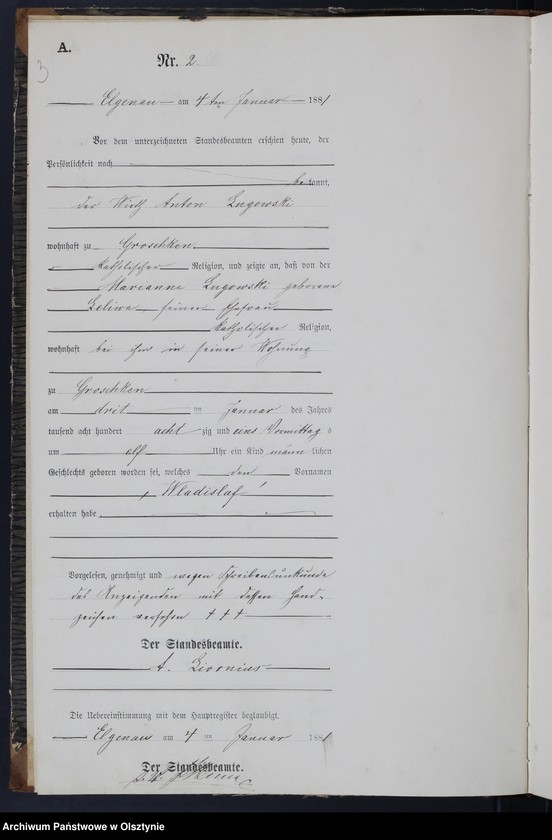 A.
Nr. 2
3
Elgenau am 4ten Januar 1881
Vor dem unterzeichneten Standesbeamten erschien heute, der
Persönlichkeit nach
bekannt,
der Wirth Anton Lugowski
wohnhaft zu Groschken
katholischer Religion, und zeigte an, daß von der
Marianne Lugowski geborene
seiner Ehefrau
katholischer Religion,
wohnhaft bei ihm in seiner Wohnung
zu Groschken
am drit ten Januar des Jahres
tausend acht hundert acht zig und eins Vormittag s
um elf Uhr ein Kind männ lichen
Geschlechts geboren worden sei, welches den Vornamen
Wladislaf
erhalten habe
Vorgelesen, genehmigt und wegen Schreibensunkunde
des Anzeigenden mit dessen Hand-
zeichen versehen + + +
Der Standesbeamte.
A.
Die Uebereinstimmung mit dem Hauptregister beglaubigt.
Elgenau am 4 ten Januar 1881
Der Standesbeamte.
Archiwum Państwowe w Olsztynie